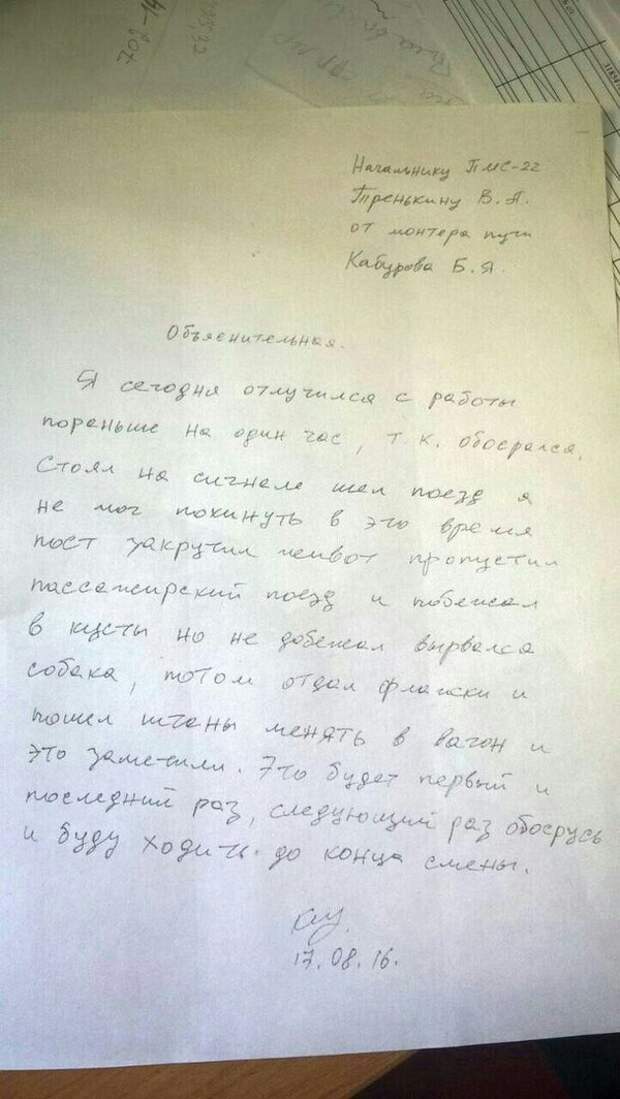 702-14
Начальнику ПМС-22
Тренькину В.П.
от монтера пути
Кабурова Б.Я.
Объяснительная.
Я сегодня отлучился с работы
пораньше на один час, т.к. обосрался.
Стоял на сигнале шел поезд я
не мог покинуть в это время
пост закрутил живот пропустил
пассажирский поезд и побежал
в кусты но не добежал вырвался
собака, потом отдал флажки и
пошел штаны менять в вагон и
это заметили. Это будет первый и
последний раз, следующий раз обосрусь
и буду ходить до конца смены.
17.08.16.